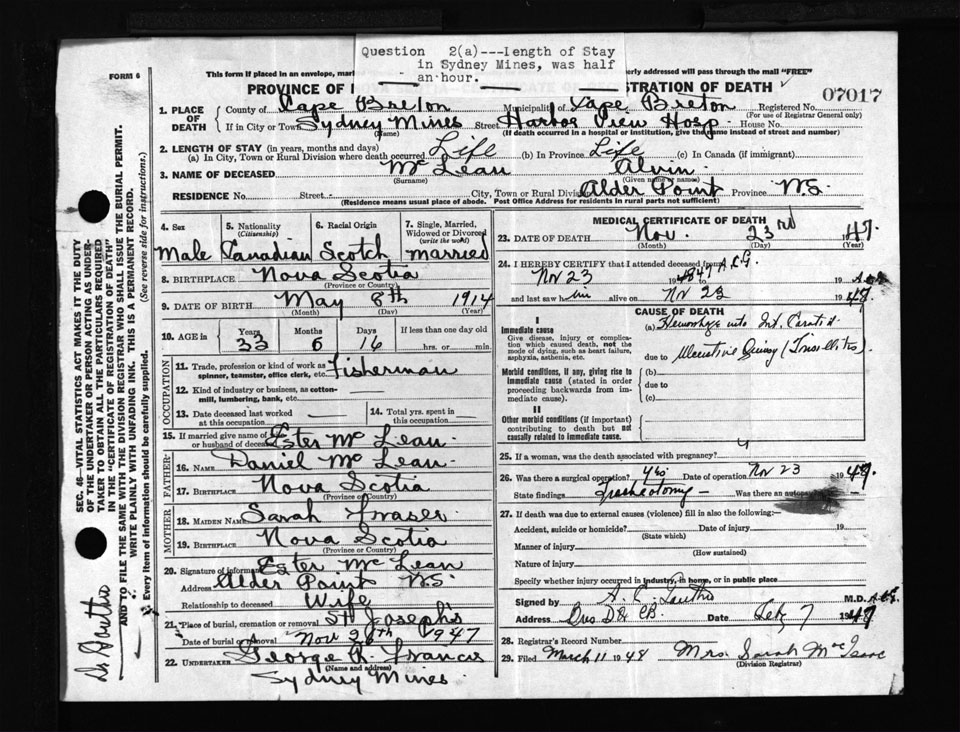 Question 2(a)---Length of Stay
in Sydney Mines, was half
an hour.
FORM 6
This form if placed in an envelope, mar
erly addressed will pass through the mail "FREE"
PROVINCE OF
STRATION OF DEATH
07017
1. PLACE OF DEATH
County of Cape Breton
Municipality of Cape Breton
Registered No.
(For use of Registrar General only)
If in City or Town Sydney Mines
(Name)
Street Harbor View Hosp. House No.
(If death occurred in a hospital or institution, give the name instead of street and number)
2. LENGTH OF STAY (in years, months and days)
(a) In City, Town or Rural Division where death occurred Life (b) In Province Life (c) In Canada (if immigrant)
3. NAME OF DECEASED Mc Lean Alvin
(Surname) (Given name or names)
RESIDENCE No. Street City, Town or Rural Division Alder Point Province N.S.
(Residence means usual place of abode. Post Office Address for residents in rural parts not sufficient)
4. Sex
Male
5. Nationality
(Citizenship)
Canadian
6. Racial Origin
Scotch
7. Single, Married, Widowed or Divorced
(write the word)
married
8. BIRTHPLACE Nova Scotia
(Province or Country)
9. DATE OF BIRTH May 8th 1914
(Month) (Day) (Year)
10. AGE in
Years Months Days If less than one day old
33 6 16 hrs. or min.
OCCUPATION
11. Trade, profession or kind of work as Fisherman
spinner, teamster, office clerk, etc.
12. Kind of industry or business, as cotton-
mill, lumbering, bank, etc.
13. Date deceased last worked
at this occupation
14. Total yrs. spent in
this occupation
15. If married give name of wife
or husband of deceased Ester Mc Lean
FATHER
16. NAME Daniel Mc Lean
17. BIRTHPLACE Nova Scotia
(Province or Country)
MOTHER
18. MAIDEN NAME Sarah Fraser
19. BIRTHPLACE Nova Scotia
(Province or Country)
20. Signature of informant Ester Mc Lean
Address Alder Point N.S.
Relationship to deceased Wife
21. Place of burial, cremation or removal St Joseph's
Date of burial or removal Nov 26th 1947
22. UNDERTAKER George R. Francis
(Name and address)
Sydney Mines
MEDICAL CERTIFICATE OF DEATH
23. DATE OF DEATH Nov. 23rd 47.
(Month) (Day) (Year)
24. I HEREBY CERTIFY that I attended deceased from
Nv 23 1947 A.C.G. 19
and last saw him alive on Nv 23 1947.
CAUSE OF DEATH
I
Immediate cause
Give disease, injury or complica-
tion which caused death, not the
mode of dying, such as heart failure,
asphyxia, asthenia, etc.
(a) Hemorrhage into Int. Carotid
due to Ulcerative Quinsy (Tonsillitis).
Morbid conditions, if any, giving rise to
immediate cause (stated in order
proceeding backwards from im-
mediate cause).
(b)
due to
(c)
II
Other morbid conditions (if important)
contributing to death but not
causally related to immediate cause.
25. If a woman, was the death associated with pregnancy?
26. Was there a surgical operation? yes Date of operation Nov 23 1947.
State findings Tracheotomy - Was there an autopsy
27. If death was due to external causes (violence) fill in also the following:-
Accident, suicide or homicide? Date of injury 19
(State which)
Manner of injury
(How sustained)
Nature of injury
Specify whether injury occurred in industry, in home, or in public place
Signed by M.D.
Address Date Feb 7
28. Registrar's Record Number
29. Filed March 11 1948 Mrs. Sarah McIsaac
(Division Registrar)
SEC. 46-VITAL STATISTICS ACT MAKES IT THE DUTY
OF THE UNDERTAKER OR PERSON ACTING AS UNDER-
TAKER TO OBTAIN ALL THE PARTICULARS REQUIRED
IN THE "CERTIFICATE OF REGISTRATION OF DEATH"
AND TO FILE THE SAME WITH THE DIVISION REGISTRAR WHO SHALL ISSUE THE BURIAL PERMIT.
WRITE PLAINLY WITH UNFADING INK. THIS IS A PERMANENT RECORD.
Every item of information should be carefully supplied. (See reverse side for instructions.)